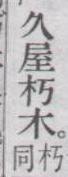 久屋朽木。朽
同